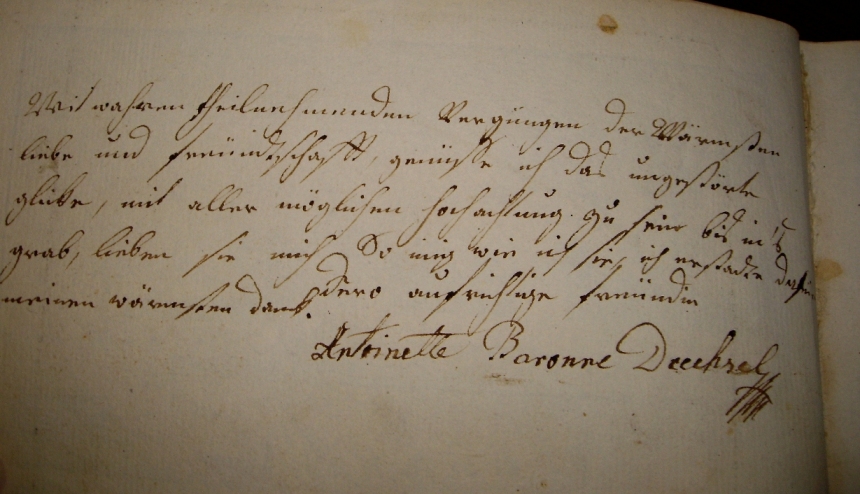 Mit wahren theilnehmenden Vergnügen der Wärmsten
liebe und freündschafft, genüsse ich das ungestörte
glüke, mit aller möglichen hochachtung zu sein bis in's
grab, lieben sie mich So innig wie ich sie, ich erstadte dafür
meinen wärmsten dank. Dero aufrichtige freündin
Antoinette Baronne Drechsel